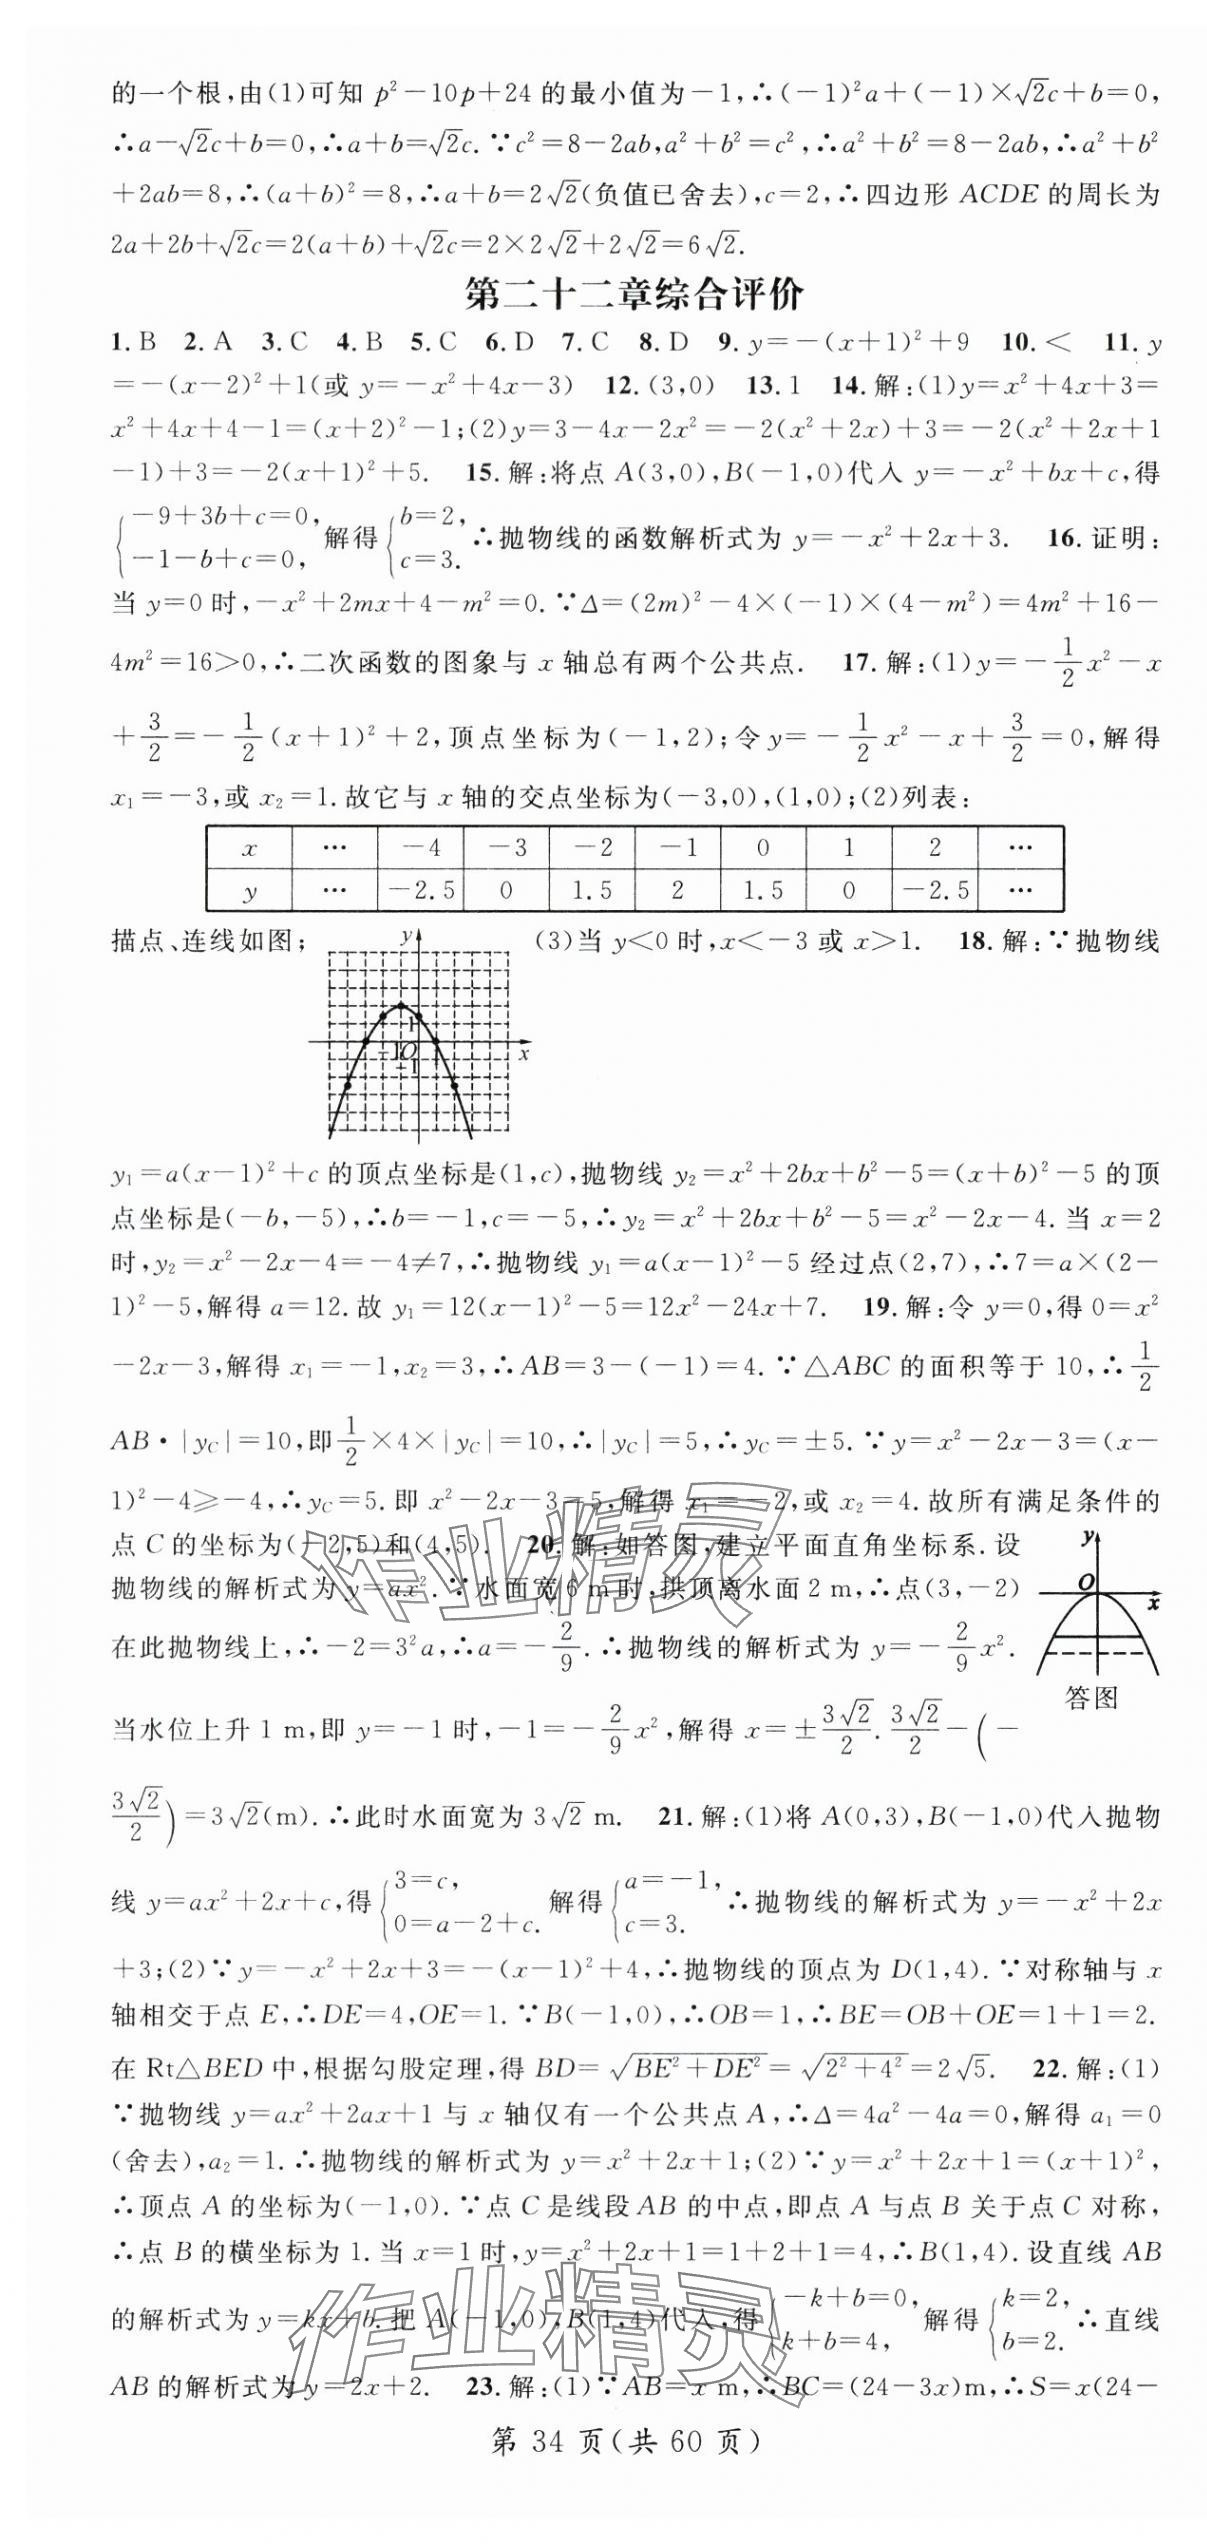 的一个根,由(1)可知 p²-10p+24 的最小值为-1,∴(-1)²a+(-1)×√2c+b=0,
∴a-√2c+b=0,∴a+b=√2c.∵c²=8-2ab,a²+b²=c²,∴a²+b²=8-2ab,∴a²+b²
+2ab=8,∴(a+b)²=8,∴a+b=2√2(负值已舍去),c=2,∴四边形 ACDE 的周长为
2a+2b+√2c=2(a+b)+√2c=2×2√2+2√2=6√2.
第二十二章综合评价
1.B 2.A 3.C 4.B 5.C 6.D 7.C 8.D 9.y=-(x+1)²+9 10.< 11.y
=-(x-2)²+1(或 y=-x²+4x-3) 12.(3,0) 13.1 14.解:(1)y=x²+4x+3=
x²+4x+4-1=(x+2)²-1;(2)y=3-4x-2x²=-2(x²+2x)+3=-2(x²+2x+1
-1)+3=-2(x+1)²+5. 15.解:将点 A(3,0),B(-1,0)代入 y=-x²+bx+c,得
{-9+3b+c=0, -1-b+c=0, 解得{b=2, c=3. ∴抛物线的函数解析式为 y=-x²+2x+3. 16.证明:
当 y=0 时,-x²+2mx+4-m²=0.∵Δ=(2m)²-4×(-1)×(4-m²)=4m²+16-
4m²=16>0,∴二次函数的图象与 x 轴总有两个公共点. 17.解:(1)y=-1/2x²-x
+3/2=-1/2(x+1)²+2,顶点坐标为(-1,2);令 y=-1/2x²-x+3/2=0,解得
x₁=-3,或 x₂=1.故它与 x 轴的交点坐标为(-3,0),(1,0);(2)列表:
x … -4 -3 -2 -1 0 1 2 …
y … -2.5 0 1.5 2 1.5 0 -2.5 …
描点、连线如图; (3)当 y<0 时,x<-3 或 x>1. 18.解:∵抛物线
y
1
-1 O x
-1
y₁=a(x-1)²+c 的顶点坐标是(1,c),抛物线 y₂=x²+2bx+b²-5=(x+b)²-5 的顶
点坐标是(-b,-5),∴b=-1,c=-5,∴y₂=x²+2bx+b²-5=x²-2x-4.当 x=2
时,y₂=x²-2x-4=-4≠7,∴抛物线 y₁=a(x-1)²-5 经过点(2,7),∴7=a×(2-
1)²-5,解得 a=12.故 y₁=12(x-1)²-5=12x²-24x+7. 19.解:令 y=0,得 0=x²
-2x-3,解得 x₁=-1,x₂=3,∴AB=3-(-1)=4.∵△ABC 的面积等于 10,∴1/2
AB·|y_C|=10,即1/2×4×|y_C|=10,∴|y_C|=5,∴y_C=±5.∵y=x²-2x-3=(x-
1)²-4≥-4,∴y_C=5.即 x²-2x-3=5,解得 x₁=-2,或 x₂=4.故所有满足条件的
点 C 的坐标为(-2,5)和(4,5). 20.解:如答图,建立平面直角坐标系.设
抛物线的解析式为 y=ax².∵水面宽 6 m 时,拱顶离水面 2 m,∴点(3,-2)
在此抛物线上,∴-2=3²a,∴a=-2/9.∴抛物线的解析式为 y=-2/9x².
y
O x
答图
当水位上升 1 m,即 y=-1 时,-1=-2/9x²,解得 x=±3√2/2.3√2/2-(-
3√2/2)=3√2(m).∴此时水面宽为 3√2 m. 21.解:(1)将 A(0,3),B(-1,0)代入抛物
线 y=ax²+2x+c,得{3=c, 0=a-2+c. 解得{a=-1, c=3. ∴抛物线的解析式为 y=-x²+2x
+3;(2)∵y=-x²+2x+3=-(x-1)²+4,∴抛物线的顶点为 D(1,4).∵对称轴与 x
轴相交于点 E,∴DE=4,OE=1.∵B(-1,0),∴OB=1,∴BE=OB+OE=1+1=2.
在 Rt△BED 中,根据勾股定理,得 BD=√(BE²+DE²)=√(2²+4²)=2√5. 22.解:(1)
∵抛物线 y=ax²+2ax+1 与 x 轴仅有一个公共点 A,∴Δ=4a²-4a=0,解得 a₁=0
(舍去),a₂=1.∴抛物线的解析式为 y=x²+2x+1;(2)∵y=x²+2x+1=(x+1)²,
∴顶点 A 的坐标为(-1,0).∵点 C 是线段 AB 的中点,即点 A 与点 B 关于点 C 对称,
∴点 B 的横坐标为 1.当 x=1 时,y=x²+2x+1=1+2+1=4,∴B(1,4).设直线 AB
的解析式为 y=kx+b.把 A(-1,0),B(1,4)代入,得{-k+b=0, k+b=4, 解得{k=2, b=2. ∴直线
AB 的解析式为 y=2x+2. 23.解:(1)∵AB=x m,∴BC=(24-3x)m,∴S=x(24-
第 34 页(共 60 页)
作业精灵
作业精灵